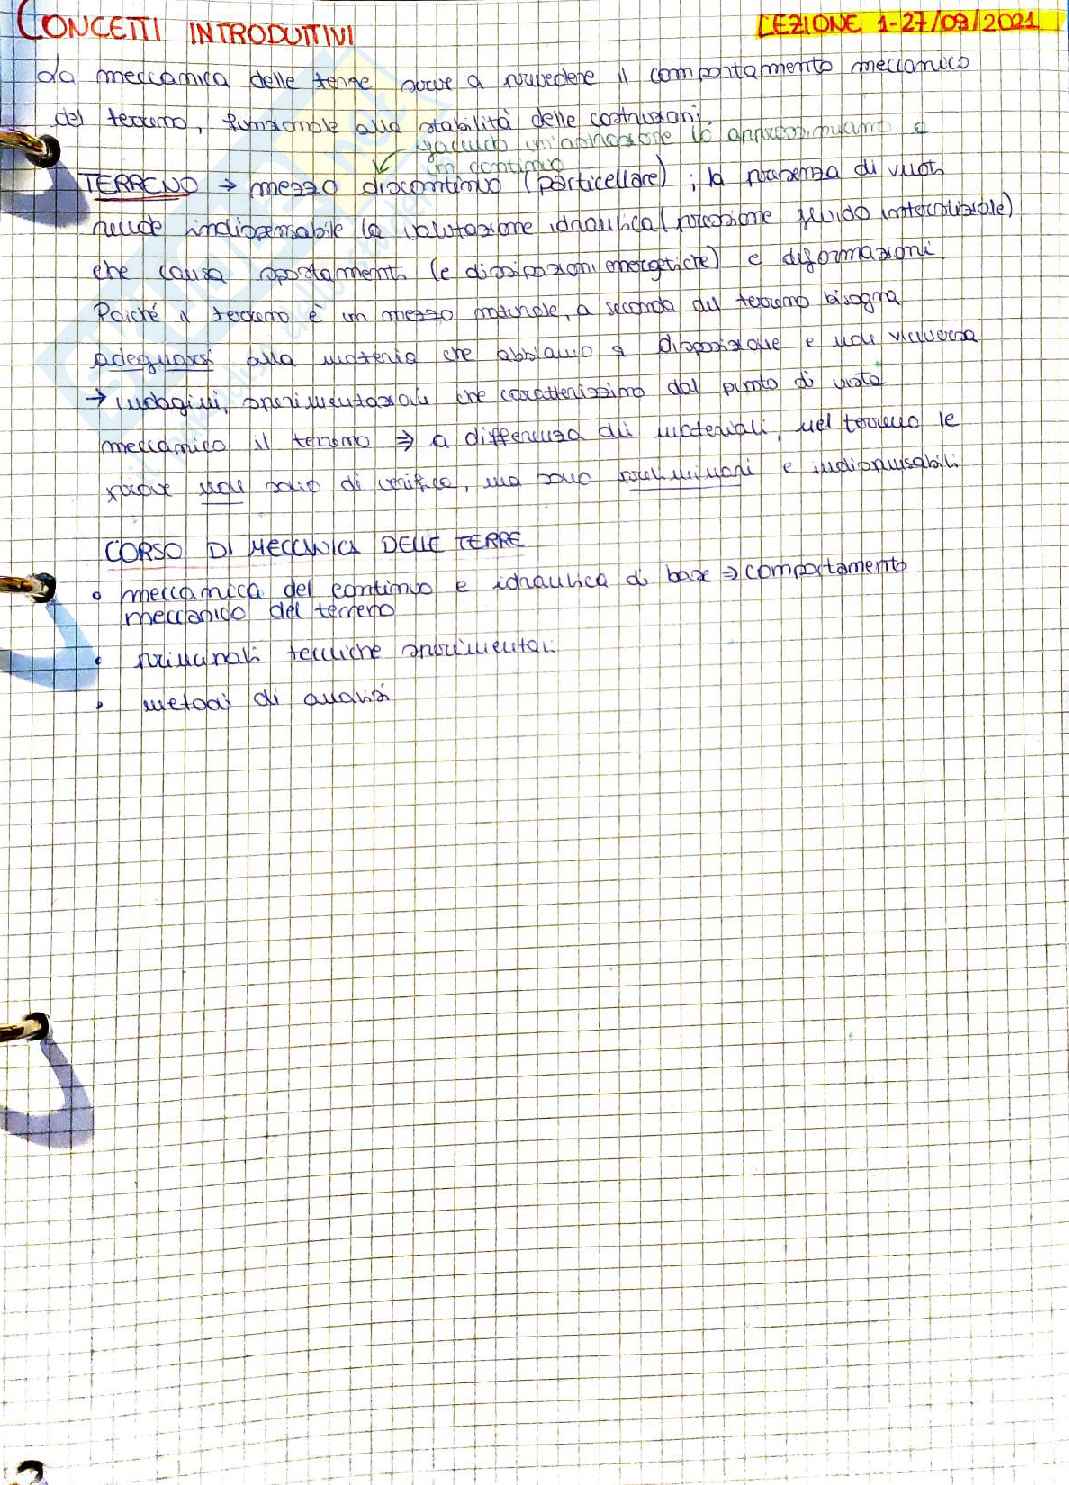 CONCETTI INTRODUTTIVI
LEZIONE 1-27/09/2021
La meccanica delle terre serve a prevedere il comportamento meccanico
del terreno, funzionale alla stabilità delle costruzioni.
facendo un'astrazione lo approssimiamo a
un continuo
TERRENO → mezzo discontinuo (particellare); la presenza di vuoti
rende indispensabile la valutazione idraulica (pressione fluido interstiziale)
che causa spostamenti (e dissipazioni energetiche) e deformazioni.
Poiché il terreno è un mezzo naturale, a seconda del terreno bisogna
adeguarsi alla materia che abbiamo a disposizione e non viceversa
→ indagini sperimentali che caratterizzino dal punto di vista
meccanico il terreno ⇒ a differenza dei materiali, nel terreno le
prove non sono di verifica, ma sono preliminari e indispensabili
CORSO DI MECCANICA DELLE TERRE
• meccanica del continuo e idraulica di base ⇒ comportamento
meccanico del terreno
• principali tecniche sperimentali
• metodi di analisi